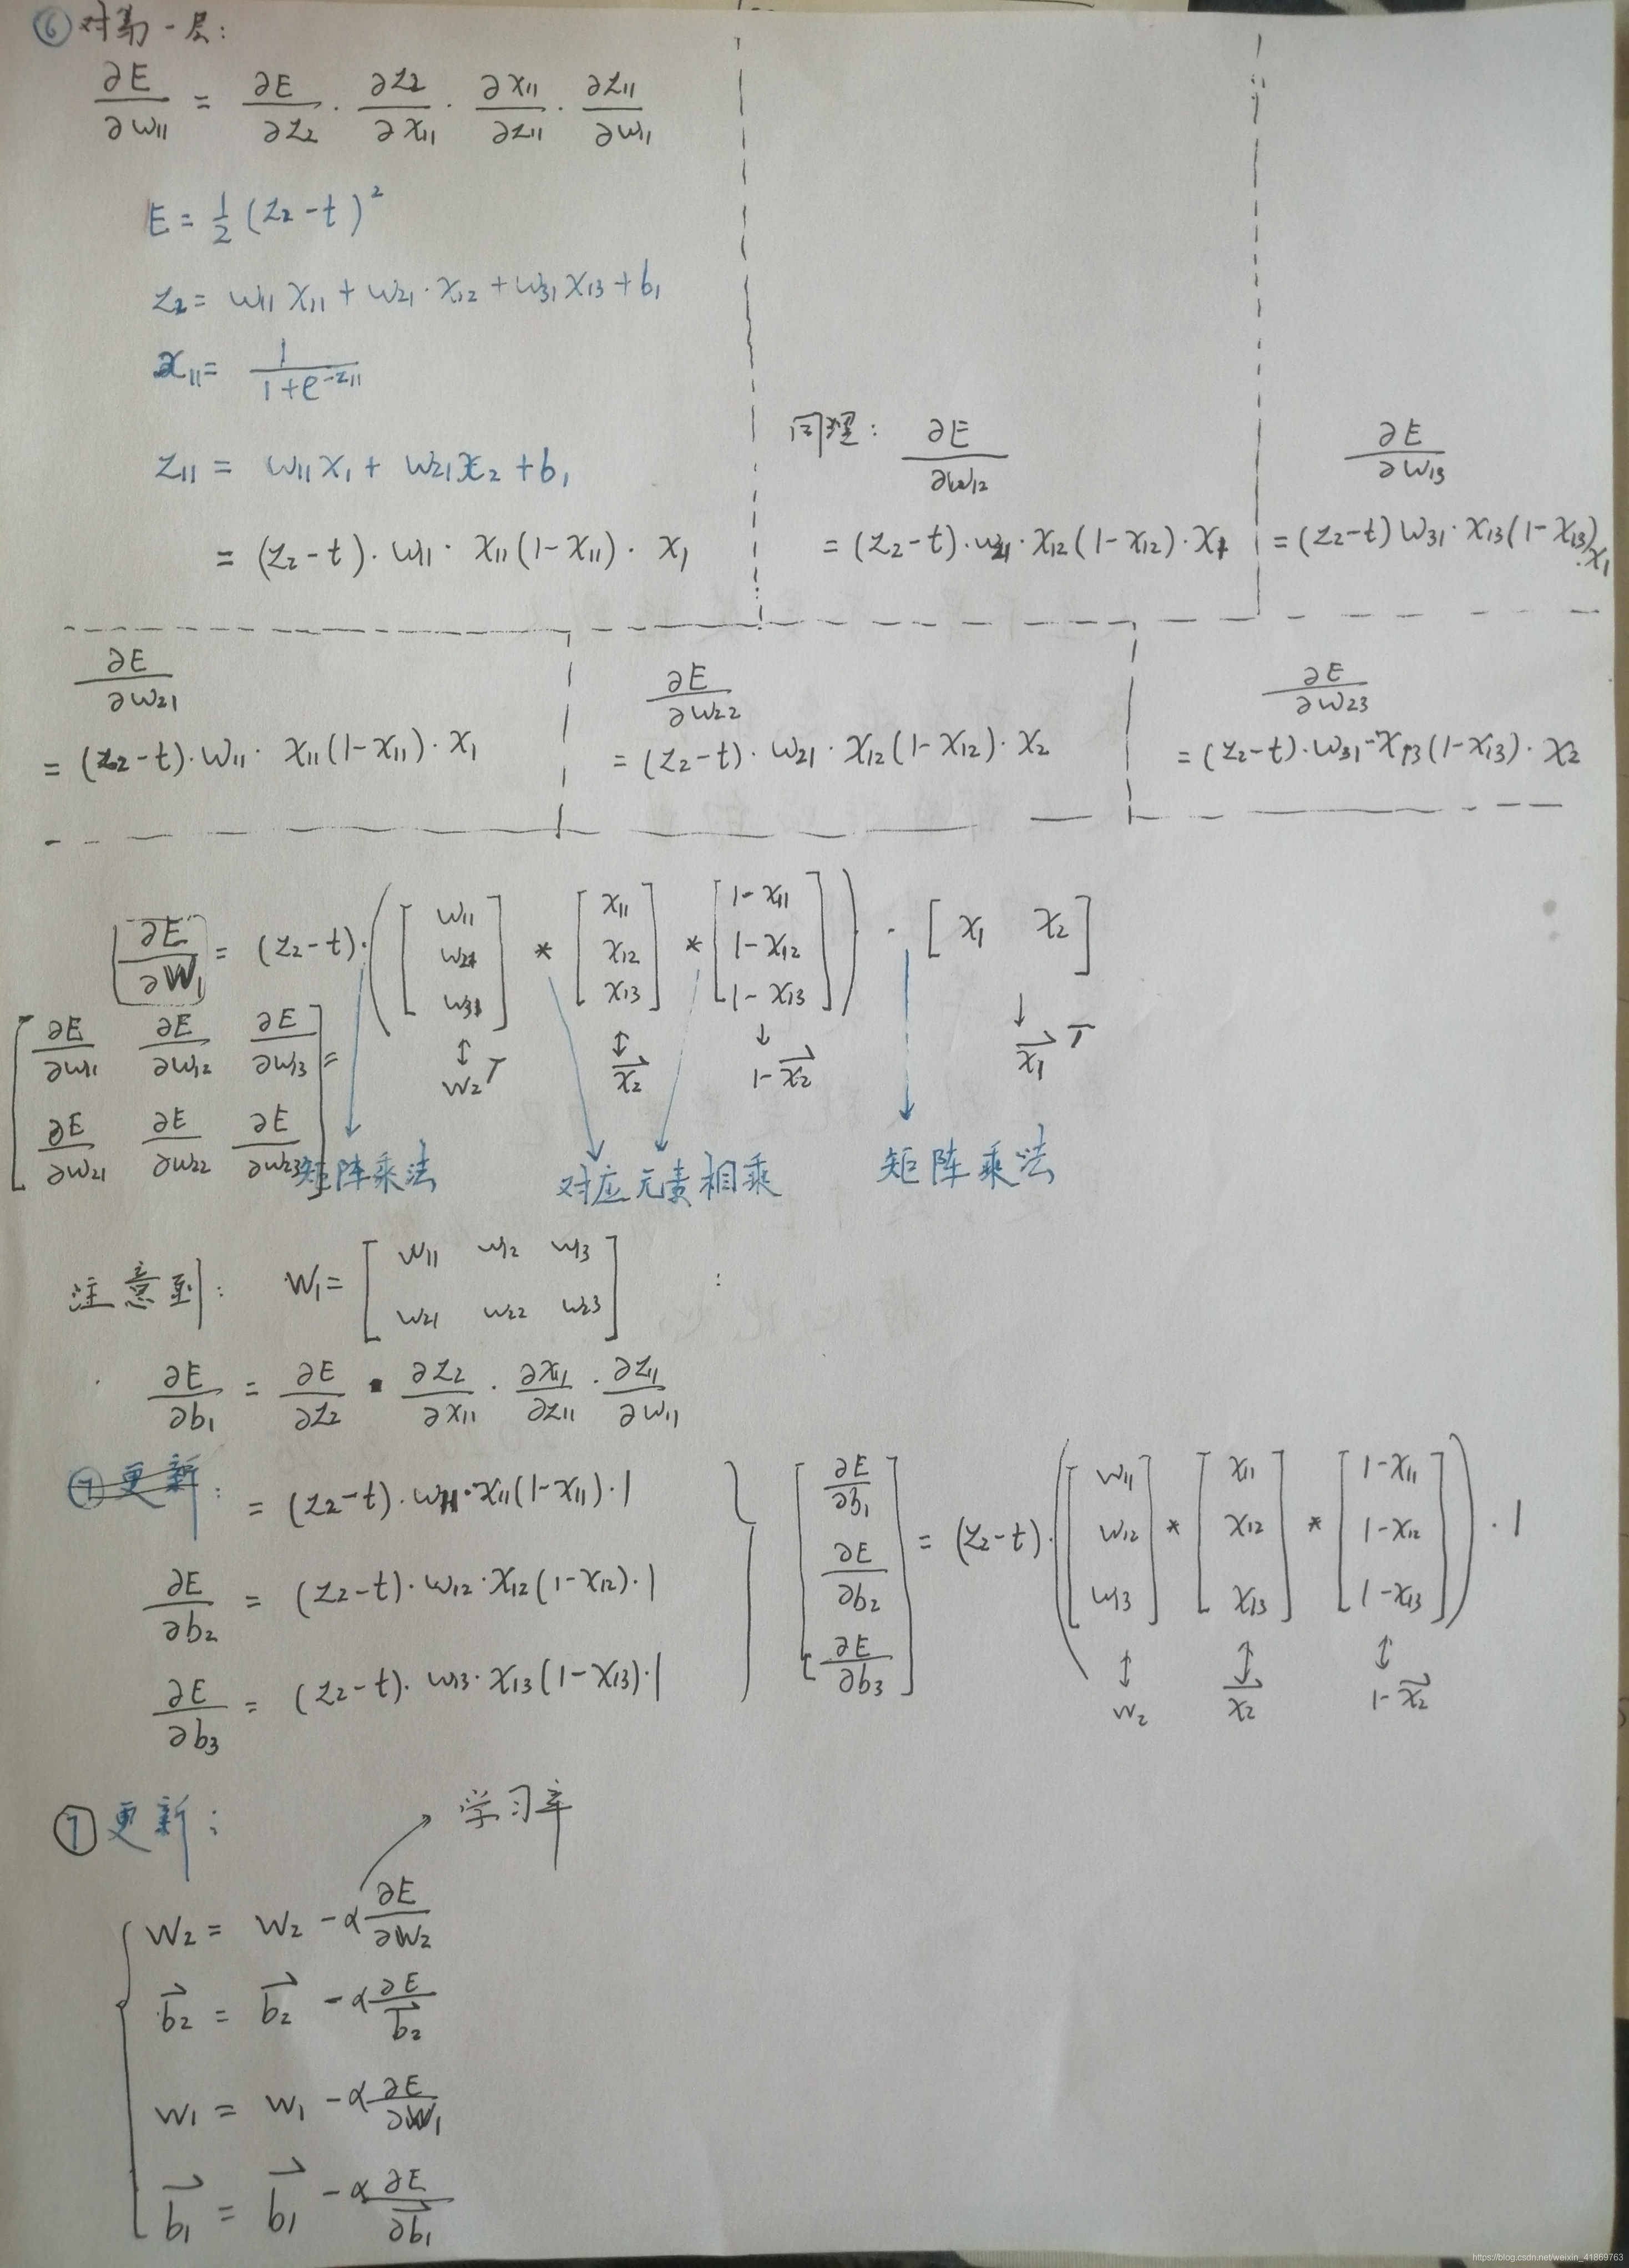 ⑥对第一层:
∂E/∂w11 = ∂E/∂z2 · ∂z2/∂x11 · ∂x11/∂z11 · ∂z11/∂w11
E = 1/2 (z2-t)²
z2 = w11 x11 + w21 · x12 + w31 x13 + b1
x11 = 1/(1+e^(-z11))
z11 = w11 x1 + w21 x2 + b1
= (z2-t) · w11 · x11(1-x11) · x1
同理: ∂E/∂w12
= (z2-t) · w21 · x12(1-x12) · x1
∂E/∂w13
= (z2-t) w31 · x13(1-x13) · x1
∂E/∂w21
= (z2-t) · w11 · x11(1-x11) · x1
∂E/∂w22
= (z2-t) · w21 · x12(1-x12) · x2
∂E/∂w23
= (z2-t) · w31 · x13(1-x13) · x2
∂E/∂W1 = (z2-t) · ([w11 w21 w31] * [x11 x12 x13] * [1-x11 1-x12 1-x13]) · [x1 x2]
↕ w2 T ↕ x⃗2 ↓ 1-x⃗2 ↓ x⃗1 T
[∂E/∂w11 ∂E/∂w12 ∂E/∂w13
∂E/∂w21 ∂E/∂w22 ∂E/∂w23] =
矩阵乘法 对应元素相乘 矩阵乘法
注意到: W1 = [w11 w12 w13
w21 w22 w23] :
∂E/∂b1 = ∂E/∂z2 · ∂z2/∂x11 · ∂x11/∂z11 · ∂z11/∂w11
⑦更新:
= (z2-t) · w11 · x11(1-x11) · 1
∂E/∂b2 = (z2-t) · w12 · x12(1-x12) · 1
∂E/∂b3 = (z2-t) · w13 · x13(1-x13) · 1
} [∂E/∂b1 ∂E/∂b2 ∂E/∂b3] = (z2-t) · ([w11 w12 w13] * [x11 x12 x13] * [1-x11 1-x12 1-x13]) · 1
↕ w2 ↕ x⃗2 ↕ 1-x⃗2
⑦更新:
学习率
w2 = w2 - α ∂E/∂W2
b⃗2 = b⃗2 - α ∂E/b⃗2
w1 = w1 - α ∂E/∂W1
b⃗1 = b⃗1 - α ∂E/∂b⃗1
https://blog.csdn.net/weixin_41869763